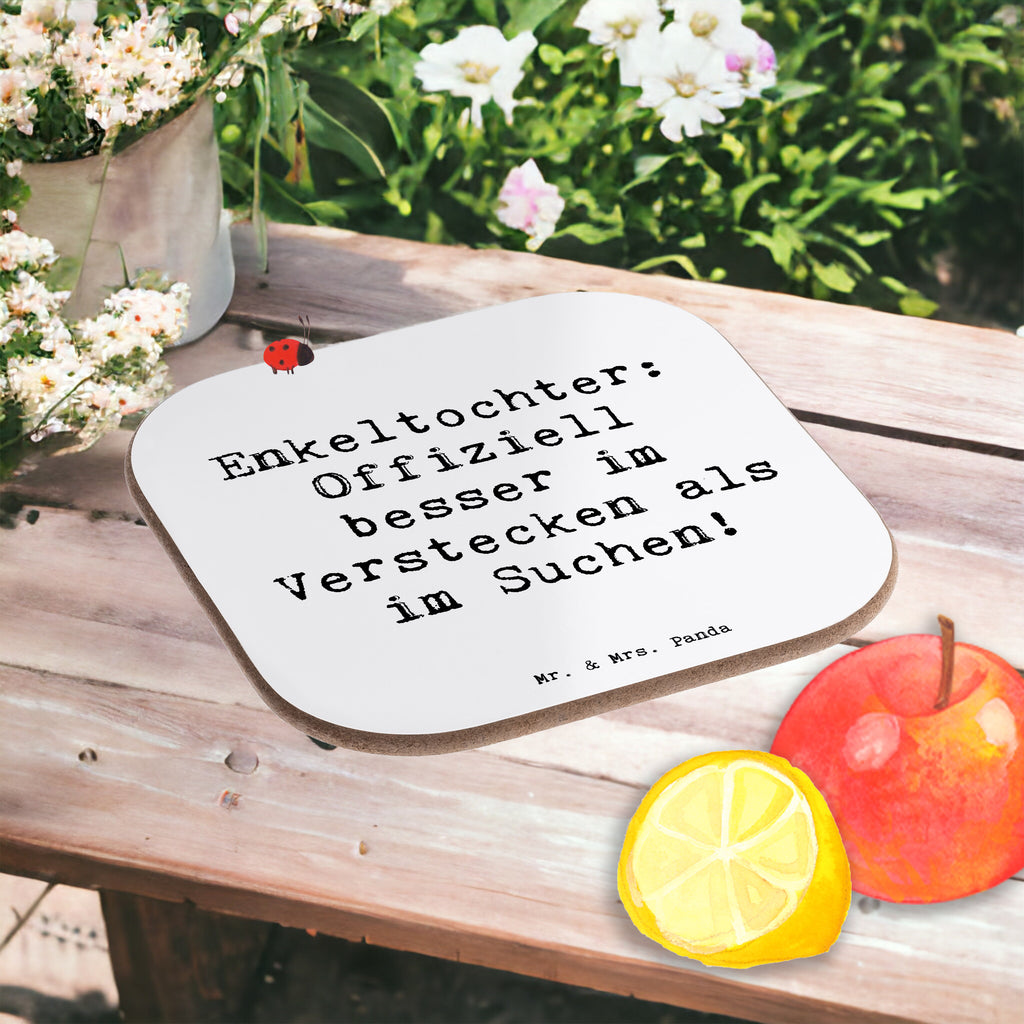 Enkeltochter:
Offiziell
besser im
Verstecken als
im Suchen!
Mr. & Mrs. Panda